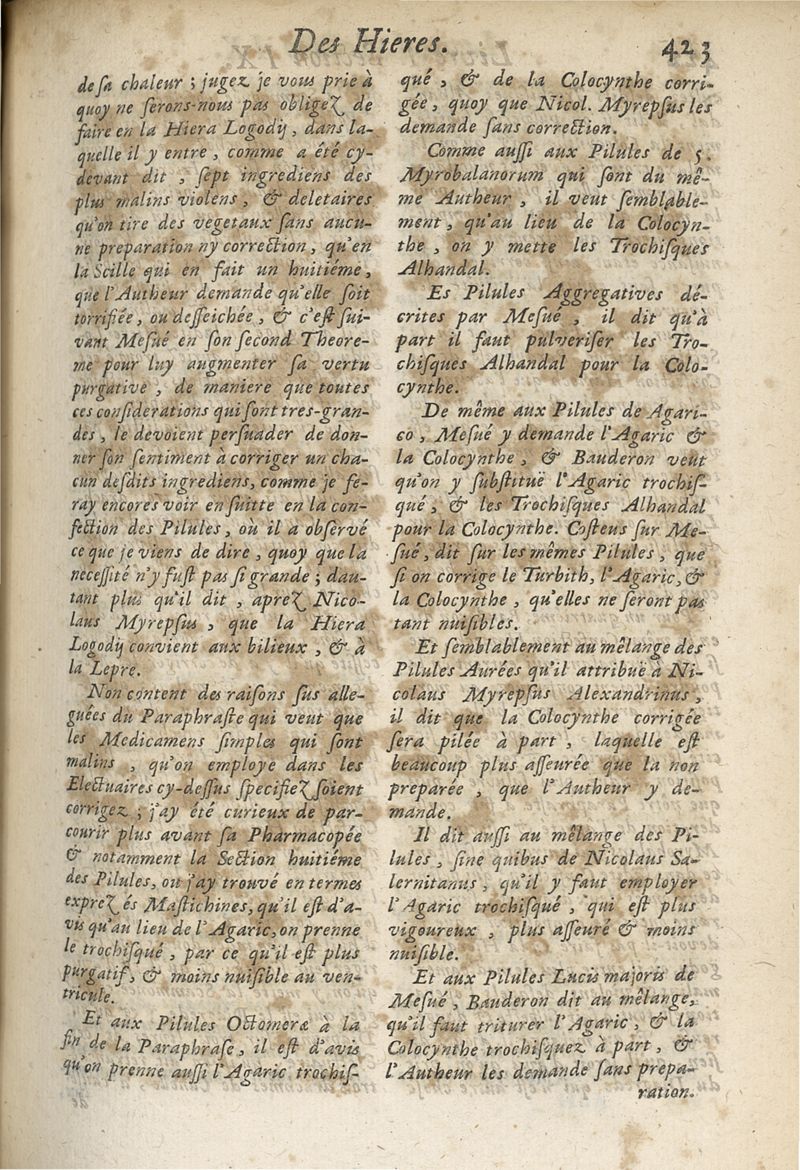 Des Hieres.
423
de ſa chaleur ; jugez je vous prie à
quoy ne ſerons-nous pas obligeζ de
faire en la Hiera Logodij, dans la-
quelle il y entre, comme a été cy-
devant dit, ſept ingrediens des
plus malins violens, & deletaires
qu'on tire des vegetaux ſans aucu-
ne preparation ny correction, qu'en
la Scille qui en fait un huitiéme,
que l'Autheur demande qu'elle ſoit
torrifiée, ou deſſeichée, & c'eſt ſui-
vant Meſué en ſon ſecond Theore-
me pour luy augmenter ſa vertu
purgative, de maniere que toutes
ces conſiderations qui ſont tres-gran-
des, le devoient perſuader de don-
ner ſon ſentiment à corriger un cha-
cun deſdits ingrediens, comme je fe-
ray encores voir en ſuitte en la con-
fection des Pilules, où il a obſervé
ce que je viens de dire, quoy que la
neceſſité n'y fuſt pas ſi grande ; dau-
tant plus qu'il dit, apreζ Nico-
laus Myrepſus, que la Hiera
Logodij convient aux bilieux, & à
la Lepre.
Non content des raiſons ſus alle-
guées du Paraphraſte qui veut que
les Medicamens ſimples qui ſont
malins, qu'on employe dans les
Electuaires cy-deſſus ſpecifieζ ſoient
corrigez ; j'ay été curieux de par-
courir plus avant ſa Pharmacopée
& notamment la Section huitiéme
des Pilules, ou j'ay trouvé en termes
expreζ és Maſtichines, qu'il eſt d'a-
vis qu'au lieu de l'Agaric, on prenne
le trochiſqué, par ce qu'il eſt plus
purgatif, & moins nuiſible au ven-
tricule.
Et aux Pilules Octomeræ à la
fin de la Paraphraſe, il eſt d'avis
qu'on prenne auſſi l'Agaric trochiſ-
qué, & de la Colocynthe corri-
gée, quoy que Nicol. Myrepſus les
demande ſans correction.
Comme auſſi aux Pilules de 5.
Myrobalanorum qui ſont du mê-
me Autheur, il veut ſemblable-
ment, qu'au lieu de la Colocyn-
the, on y mette les Trochiſques
Alhandal.
Es Pilules Aggregatives dé-
crites par Meſué, il dit qu'à
part il faut pulveriſer les Tro-
chiſques Alhandal pour la Colo-
cynthe.
De même aux Pilules de Agari-
co, Meſué y demande l'Agaric &
la Colocynthe, & Bauderon veut
qu'on y ſubſtituë l'Agaric trochiſ-
qué, & les Trochiſques Alhandal
pour la Colocynthe. Coſteus ſur Me-
ſué, dit ſur les mêmes Pilules, que
ſi on corrige le Turbith, l'Agaric, &
la Colocynthe, qu'elles ne ſeront pas
tant nuiſibles.
Et ſemblablement au mêlange des
Pilules Aurées qu'il attribuë à Ni-
colaus Myrepſus Alexandrinus,
il dit que la Colocynthe corrigée
ſera pilée à part, laquelle eſt
beaucoup plus aſſeurée que la non
preparée, que l'Autheur y de-
mande.
Il dit auſſi au mêlange des Pi-
lules, ſine quibus de Nicolaus Sa-
lernitanus, qu'il y faut employer
l'Agaric trochiſqué, qui eſt plus
vigoureux, plus aſſeuré & moins
nuiſible.
Et aux Pilules Lucis majoris de
Meſué, Bauderon dit au mêlange,
qu'il faut triturer l'Agaric, & la
Colocynthe trochiſquez à part, &
l'Autheur les demande ſans prepa-
ration.